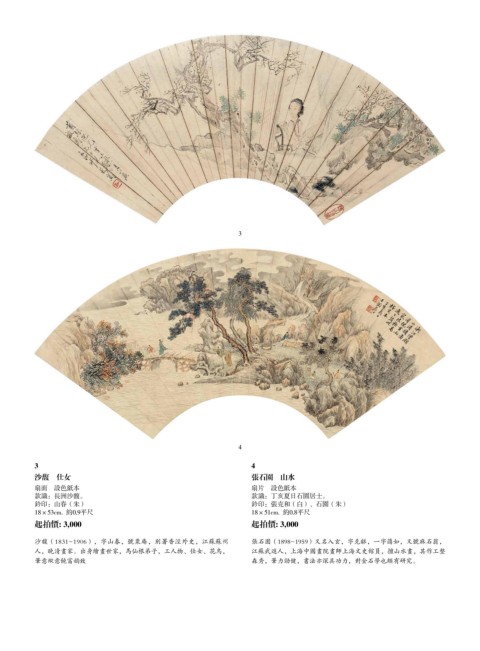 3
4
3
沙馥 仕女
扇面 設色紙本
款識：長洲沙馥。
鈐印：山春（朱）
18 × 53cm. 約0.9平尺
起拍價: 3,000
沙馥（1831-1906），字山春，號粟庵，別署香涇外史，江蘇蘇州
人，晚清畫家。出身繪畫世家，馬仙根弟子，工人物、仕女、花鳥，
筆意
4
張石園 山水
扇片 設色紙本
款識：丁亥夏日石園居士。
鈐印：張克和（白）、石園（朱）
18 × 51cm. 約0.8平尺
起拍價: 3,000
張石園（1898-1959）又名入玄，字克龢，一字藹如，又號麻石翁，
江蘇武進人，上海中國畫院畫師上海文史館員，擅山水畫，其作工整
森秀，筆力勁健，書法亦深具功力，對金石學也頗有研究。